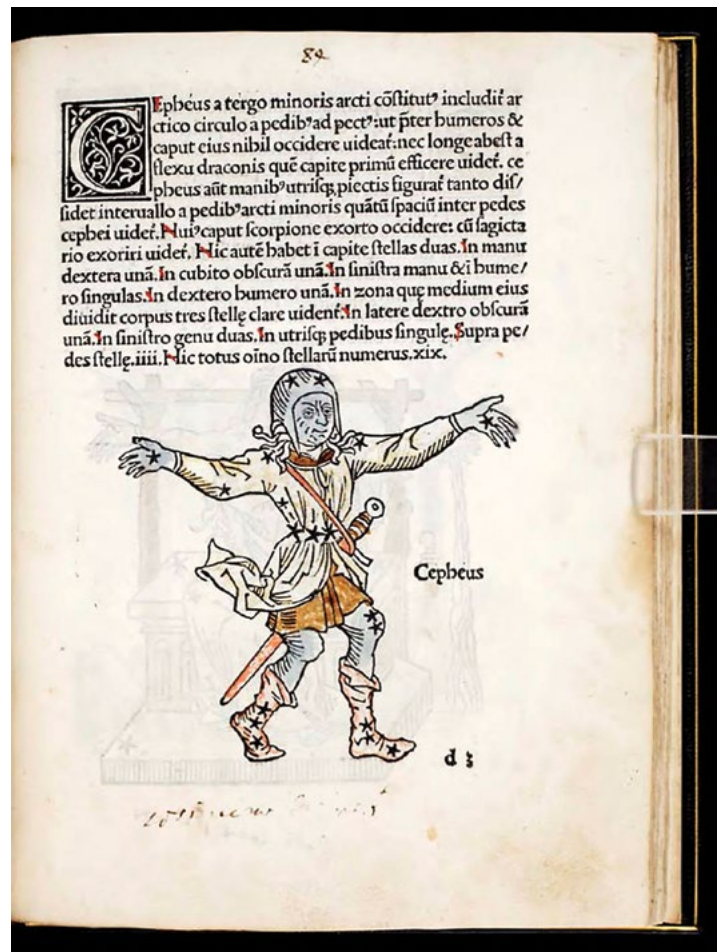 89
CEpheus a tergo minoris arcti cōstitutꝰ includit̃ ar
ctico circulo a pedibꝰ ad pectꝰ: ut p̃ter humeros &
caput eius nihil occidere uideat̃: nec longe abest a
flexu draconis quē capite primū efficere uidet̃. ce
pheus aūt manibꝰ utrisq; ꝓiectis figurat̃ tanto dis/
sidet interuallo a pedibꝰ arcti minoris quātū spaciū inter pedes
cephei uidet̃. Huiꝰ caput scorpione exorto occidere: cū sagicta
rio exoriri uidet̃. Hic autē habet ī capite stellas duas. In manu
dextera unā. In cubito obscurā unā. In sinistra manu & ī hume/
ro singulas. In dextero humero unā. In zona quę medium eius
diuidit corpus tres stellę clare uident̃. In latere dextro obscurā
unā. In sinistro genu duas. In utrisq; pedibus singulę. Supra pe/
des stellę. iiii. Hic totus oīno stellarū numerus. xix.
Cepheus
d 3